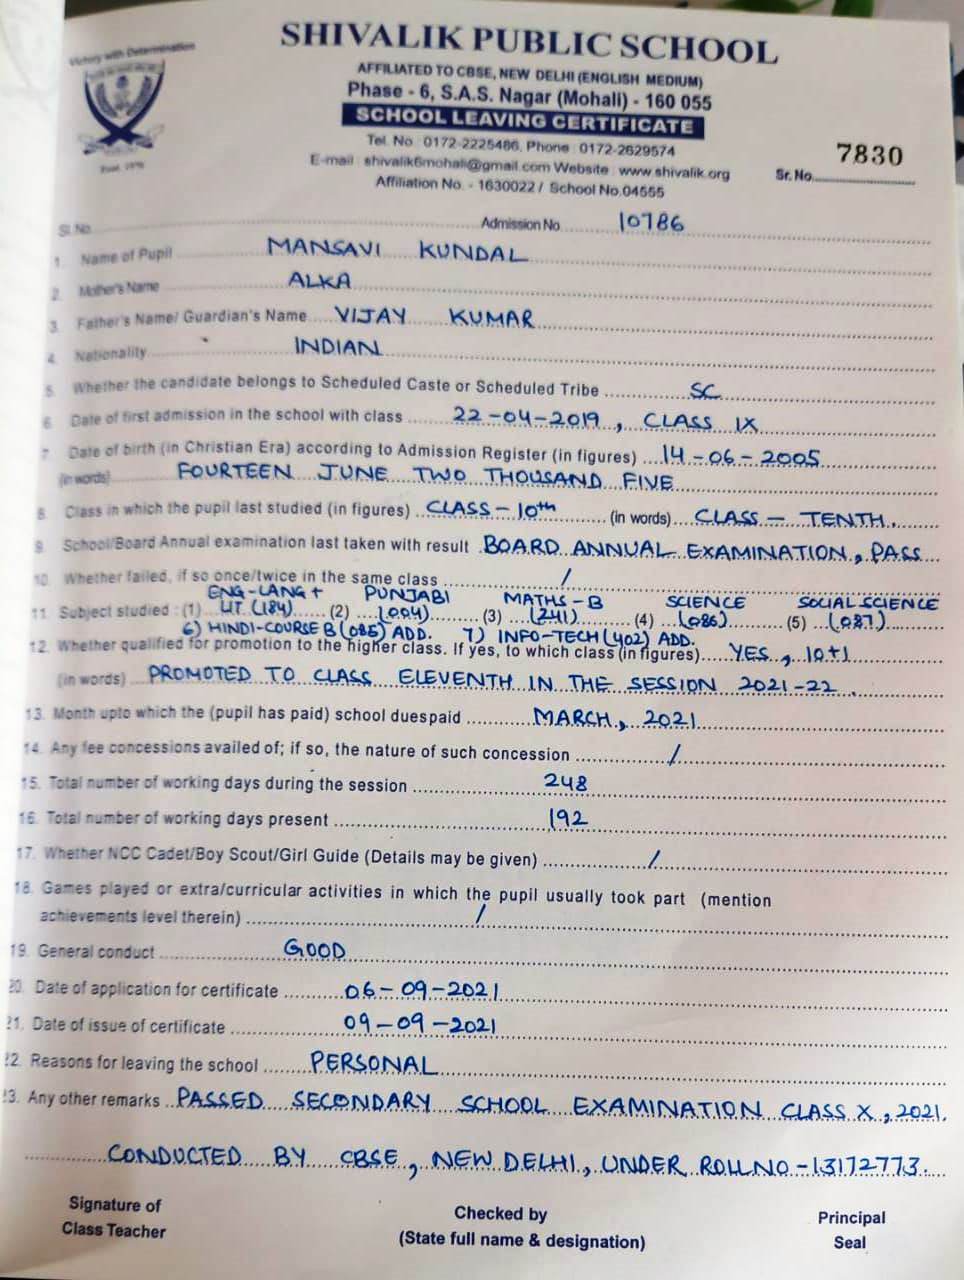 Victory with Determination
SHIVALIK PUBLIC SCHOOL
AFFILIATED TO CBSE, NEW DELHI (ENGLISH MEDIUM)
Phase - 6, S.A.S. Nagar (Mohali) - 160 055
SCHOOL LEAVING CERTIFICATE
Tel. No : 0172-2225486, Phone : 0172-2629574
E-mail : shivalik6mohali@gmail.com Website : www.shivalik.org
Affiliation No. - 1630022 / School No.04555
Sr. No. 7830
Sl. No. Admission No. 10786
1. Name of Pupil MANSAVI KUNDAL
2. Mother's Name ALKA
3. Father's Name/ Guardian's Name VIJAY KUMAR
4. Nationality INDIAN
5. Whether the candidate belongs to Scheduled Caste or Scheduled Tribe SC
6. Date of first admission in the school with class 22-04-2019, CLASS IX
7. Date of birth (in Christian Era) according to Admission Register (in figures) 14-06-2005
(in words) FOURTEEN JUNE TWO THOUSAND FIVE
8. Class in which the pupil last studied (in figures) CLASS-10th (in words) CLASS - TENTH.
9. School/Board Annual examination last taken with result BOARD ANNUAL EXAMINATION, PASS
10. Whether failed, if so once/twice in the same class /
ENG-LANG + PUNJABI MATHS-B SCIENCE SOCIAL SCIENCE
11. Subject studied : (1) LIT (184) (2) (004) (3) (241) (4) (086) (5) (087)
6) HINDI-COURSE B (085) ADD. 7) INFO-TECH (402) ADD.
12. Whether qualified for promotion to the higher class. If yes, to which class (in figures) YES, 10+1
(in words) PROMOTED TO CLASS ELEVENTH IN THE SESSION 2021-22.
13. Month upto which the (pupil has paid) school duespaid MARCH, 2021
14. Any fee concessions availed of; if so, the nature of such concession /
15. Total number of working days during the session 248
16. Total number of working days present 192
17. Whether NCC Cadet/Boy Scout/Girl Guide (Details may be given) /
18. Games played or extra/curricular activities in which the pupil usually took part (mention
achievements level therein) /
19. General conduct GOOD
20. Date of application for certificate 06-09-2021
21. Date of issue of certificate 09-09-2021
22. Reasons for leaving the school PERSONAL
23. Any other remarks PASSED SECONDARY SCHOOL EXAMINATION CLASS X, 2021.
CONDUCTED BY CBSE, NEW DELHI, UNDER ROLL NO-13172773.
Signature of
Class Teacher
Checked by
(State full name & designation)
Principal
Seal